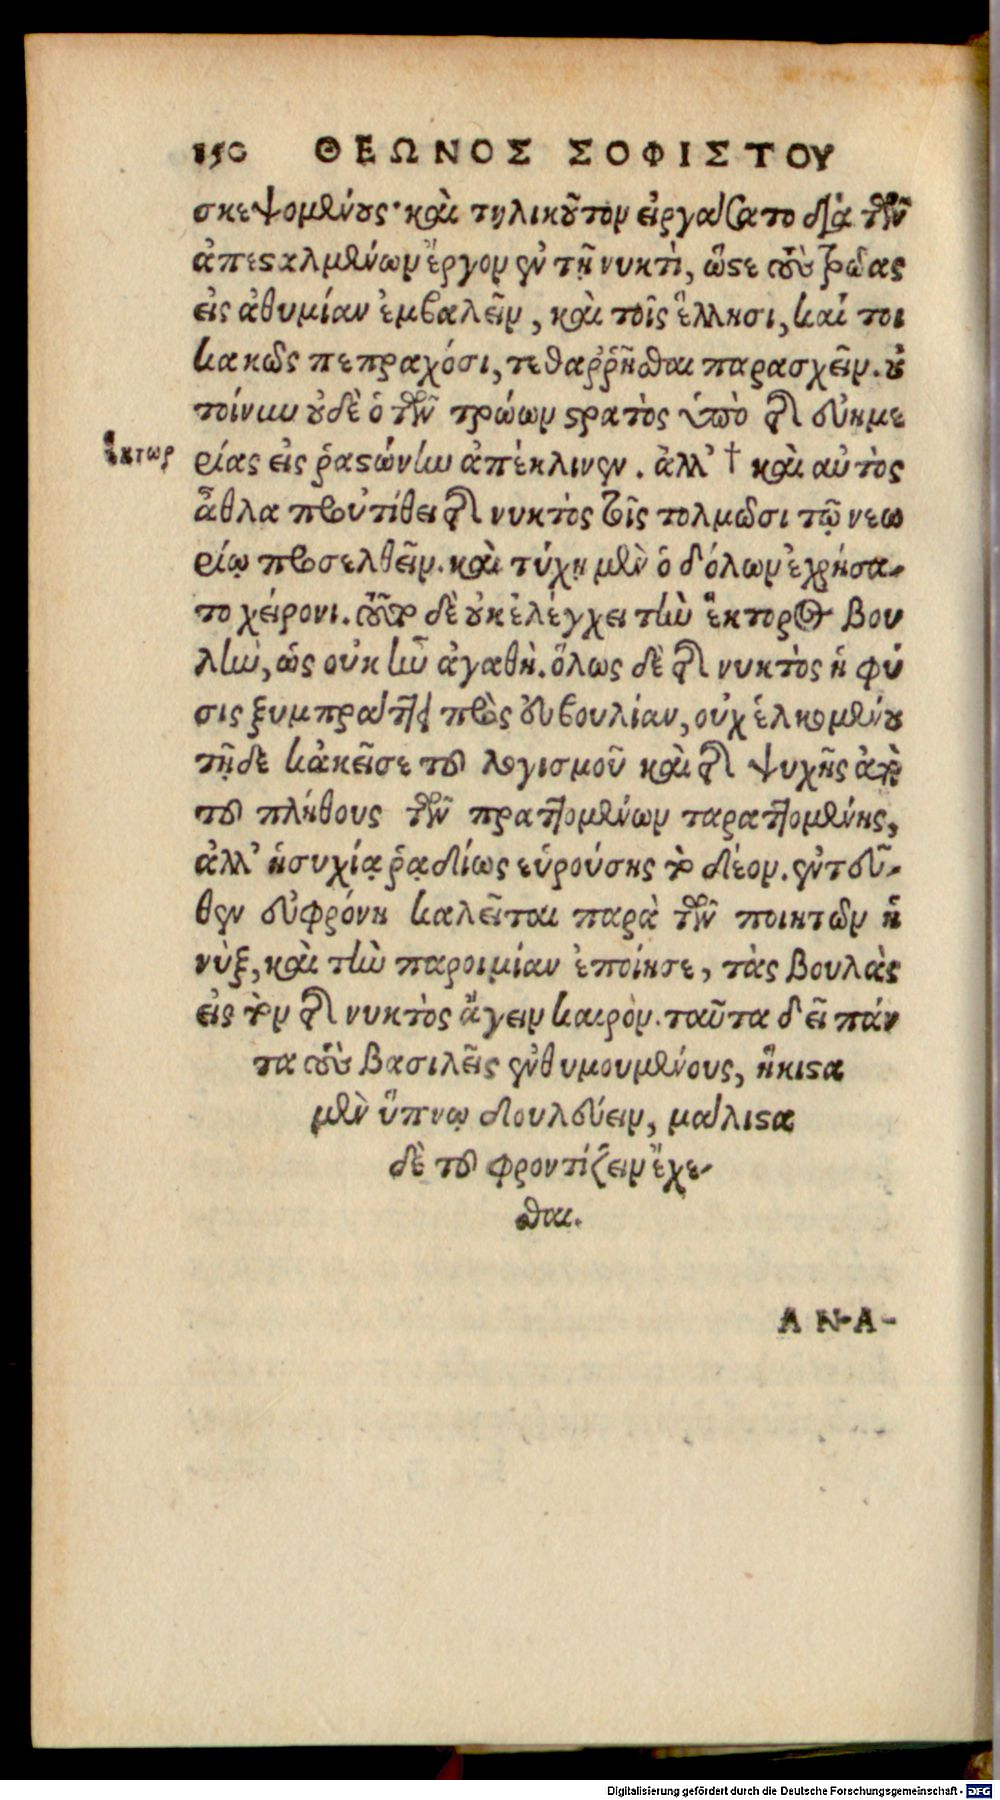 150 ΘΕΩΝΟΣ ΣΟΦΙΣΤΟΥ
σκεψομένους· καὶ τηλικοῦτον εἰργάσατο διὰ τῶν
ἀπεσταλμένων ἔργον ἐν τῇ νυκτὶ, ὥστε τοὺς Τρῶας
εἰς ἀθυμίαν ἐμβαλεῖν, καὶ τοῖς ἕλλησι, καί τοι
κακῶς πεπραχόσι, τεθαῤῥῆσθαι παρασχεῖν. οὐ
τοίνυν οὐδὲ ὁ τῶν τρώων στρατὸς ὑπὸ τῆς εὐημε
ρίας εἰς ῥαστώνην ἀπέκλινεν. ἀλλ’ † καὶ αὐτὸς
Ἕκτωρ
ἆθλα προὐτίθει τῆς νυκτὸς τοῖς τολμῶσι τῷ νεω
ρίῳ προσελθεῖν. καὶ τύχῃ μὲν ὁ δόλων ἐχρήσα-
το χείρονι. τοῦτο δὲ οὐκ ἐλέγχει τὴν ἕκτορος βου
λὴν, ὡς οὐκ ἦν ἀγαθή. ὅλως δὲ τῆς νυκτὸς ἡ φύ
σις ξυμπράττει πρὸς εὐβουλίαν, οὐχ ἑλκομένου
τῇδε κἀκεῖσε τοῦ λογισμοῦ καὶ τῆς ψυχῆς ἀπὸ
τοῦ πλήθους τῶν πραττομένων ταραττομένης,
ἀλλ’ ἡσυχίᾳ ῥᾳδίως εὑρούσης τὸ δέον. ἐντεῦ-
θεν εὐφρόνη καλεῖται παρὰ τῶν ποιητῶν ἡ
νὺξ, καὶ τὴν παροιμίαν ἐποίησε, τὰς βουλὰς
εἰς τὸν τῆς νυκτὸς ἄγειν καιρὸν. ταῦτα δεῖ πάν
τα τοὺς βασιλεῖς ἐνθυμουμένους, ἥκιστα
μὲν ὕπνῳ δουλεύειν, μάλιστα
δὲ τοῦ φροντίζειν ἔχε-
σθαι.
ΑΝΑ-
Digitalisierung gefördert durch die Deutsche Forschungsgemeinschaft - DFG